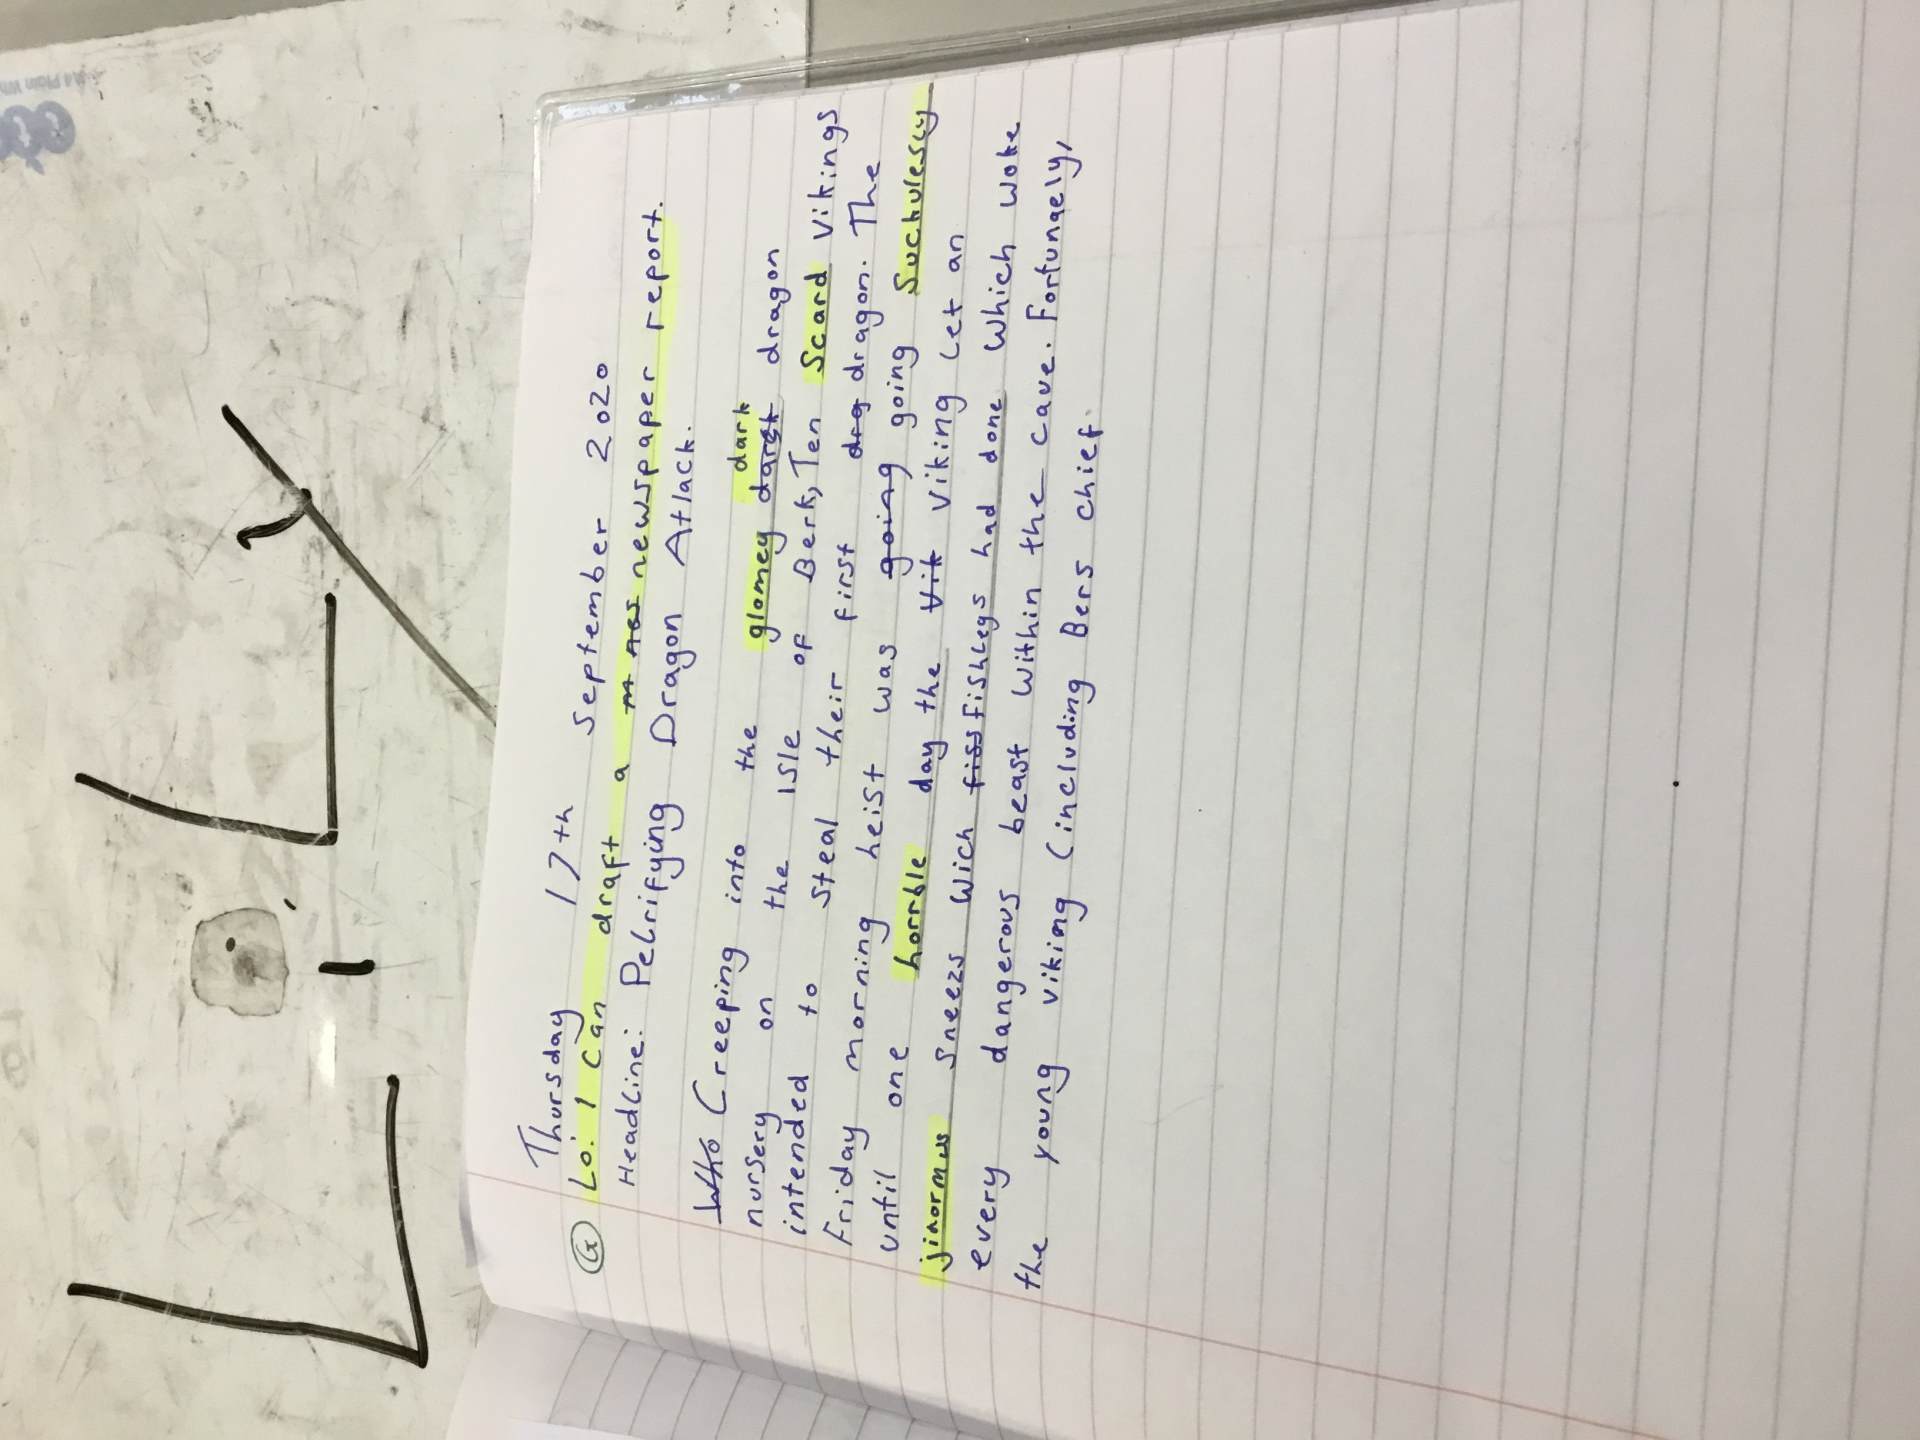 LILY
Thursday 17th September 2020
G Lo: I can draft a m nes newspaper report.
Headline: Petrifying Dragon Attack.
Who Creeping into the glomey darck dark
nursery on the isle of Berk, Ten Scard Vikings
intended to steal their first drg dragon. The
Friday morning heist was going going Suchulescy
until one horrble day the Vik Viking let an
jinormus sneezs Wich fiss Fishlegs had done Which woke
every dangerous beast within the cave. Fortunaely,
the young viking (including Bers chief.